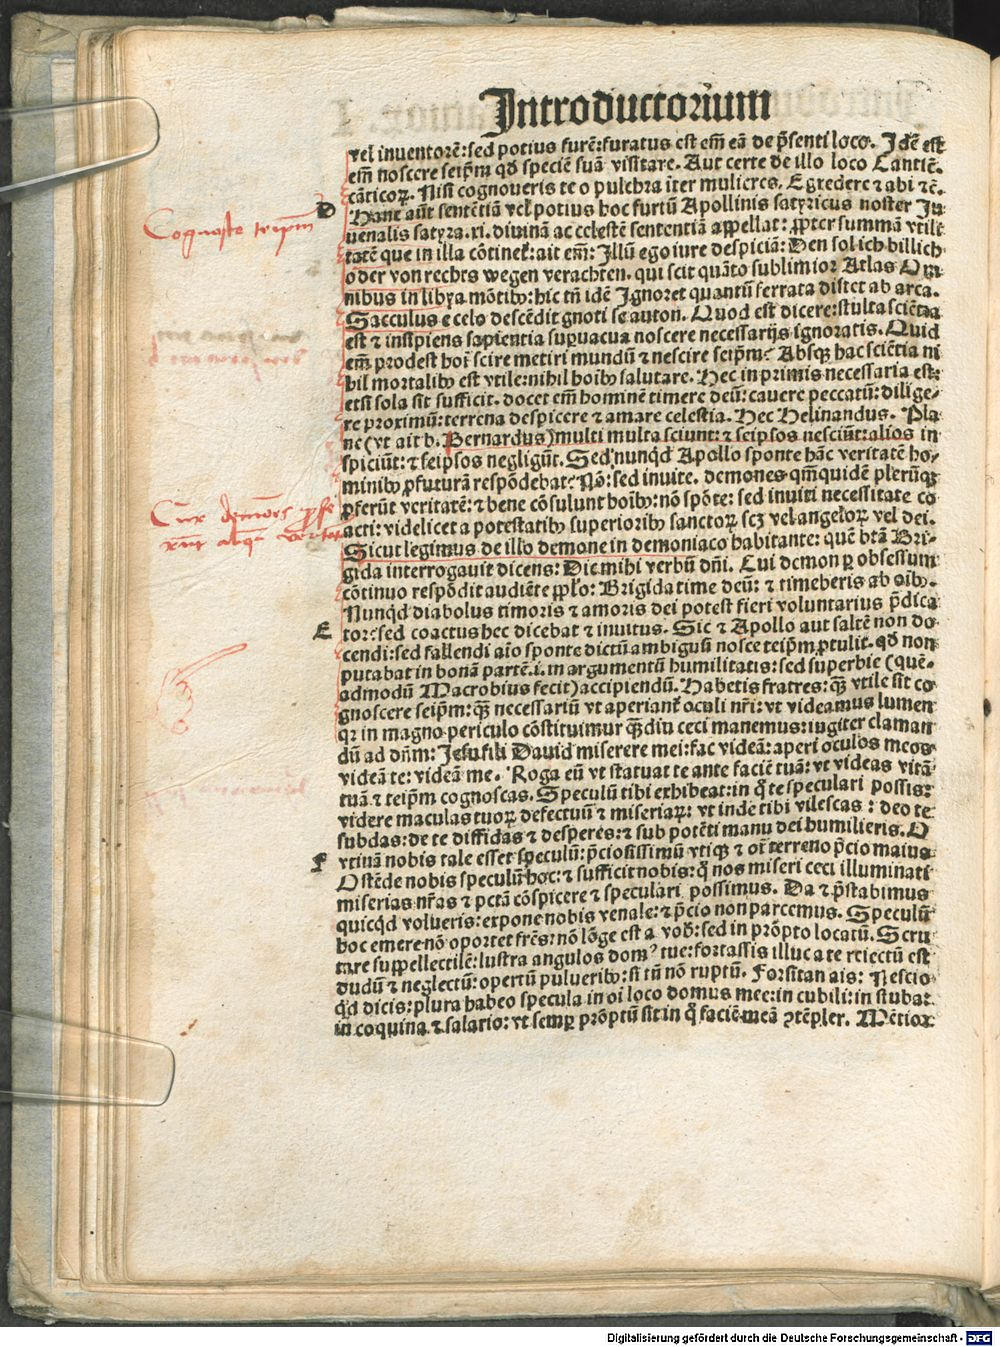 Introductorium
vel inventorē: sed potius furē: furatus est em̄ eā de p̄senti loco. Idē est
em̄ noscere seip̄m qđ speciē suā visitare. Aut certe de illo loco Cantic̄.
cāticoꝝ. Nisi cognoueris te o pulchra īter mulieres. Egredere ⁊ abi ⁊c̄.
D
Hanc aūt sentētiā vel potius hoc furtū Apollinis satyricus noster Iu
Cognosce teipsm̄
uenalis satyra .xi. diuinā ac celestē sententiā appellat: ꝓpter summā vtili
tatē que in illa cōtinet̄: ait em̄: Illū ego iure despiciā: Den sol ich billich
oder von rechts wegen verachten. qui scit quāto sublimior Atlas Om
nibus in libya mōtibꝰ: hic tn̄ idē Ignoret quantū ferrata distet ab arca.
Sacculus e celo descēdit gnoti se auton. Quod est dicere: stulta sciētia
est ⁊ insipiens sapientia supuacua noscere necessarijs ignoratis. Quid
em̄ prodest hoī scire metiri mundū ⁊ nescire seip̄m? Absqꝫ hac sciētia ni
hil mortalibꝰ est vtile: nihil hoībꝰ salutare. Hec in primis necessaria est:
etsi sola sit sufficit. docet em̄ hominē timere deū: cauere peccatū: dilige-
re proximū: terrena despicere ⁊ amare celestia. Hec Helinandus. Pla
ne (vt ait b. Bernardus) multi multa sciunt: ⁊ seipsos nesciūt: alios in
spiciūt: ⁊ seipsos negligūt. Sed nunqđ Apollo sponte hāc veritatē ho-
minibꝰ ꝓfuturā respōdebat? Nō: sed inuite. demones qm̄quidē plerūqꝫ
Cur demones profe
ꝓferūt veritatē: ⁊ bene cōsulunt hoībꝰ: nō spōte: sed inuiti necessitate co
runt aliqn̄ veritatem
acti: videlicet a potestatibꝰ superioribꝰ sanctoꝝ scꝫ vel angeloꝝ vel dei.
Sicut legimus de illo demone in demoniaco habitante: quē btā Bri-
gida interrogauit dicens: Dic mihi verbū dn̄i. Cui demon ꝑ obsessum
cōtinuo respōdit audiēte ppl̄o: Brigida time deū: ⁊ timeberis ab oībꝰ.
Nunqđ diabolus timoris ⁊ amoris dei potest fieri voluntarius p̄dica
E
tor: sed coactus hec dicebat ⁊ inuitus. Sic ⁊ Apollo aut saltē non do-
cendi: sed fallendi aīo sponte dictū ambiguū nosce teip̄m ꝓtulit. qđ non
putabat in bonā partē .i. in argumentū humilitatis: sed superbie (quē-
admodū Macrobius fecit) accipiendū. Habetis fratres: qꝫ vtile sit co
gnoscere seip̄m: qꝫ necessariū vt aperiant̄ oculi nr̄i: vt videamus lumen
qꝛ in magno periculo cōstituimur qꝫdiu ceci manemus: iugiter claman
dū ad dn̄m: Iesu fili Dauid miserere mei: fac videā: aperi oculos meos
videā te: videā me. Roga eū vt statuat te ante faciē tuā: vt videas vitā
tuā ⁊ teip̄m cognoscas. Speculū tibi exhibeat: in q̄ te speculari possis:
videre maculas tuoꝝ defectuū ⁊ miseriaꝝ: vt inde tibi vilescas: deo te
subdas: de te diffidas ⁊ desperes: ⁊ sub potēti manu dei humilieris. O
F
vtinā nobis tale esset speculū: p̄ciosissimū vtiqꝫ ⁊ oī terreno p̄cio maius
Ostēde nobis speculū hoc: ⁊ sufficit nobis: q̄ nos miseri ceci illuminati
miserias nr̄as ⁊ pctā cōspicere ⁊ speculari possimus. Da ⁊ p̄stabimus
quicqđ volueris: expone nobis venale: ⁊ p̄cio non parcemus. Speculū
hoc emere nō oportet fr̄es: nō lōge est a vobꝭ: sed in prōpto locatū. Scru
tare suppellectilē: lustra angulos domꝰ tue: fortassis illuc a te reiectū est
dudū ⁊ neglectū: opertū puluerībꝰ: si tn̄ nō ruptū. Forsitan ais: Nescio
qđ dicis: plura habeo specula in oī loco domus mee: in cubili: in stuba:
in coquina ⁊ salario: vt semꝑ prōptū sit in q̄ faciē meā ꝯtēpler. Mētior
Digitalisierung gefördert durch die Deutsche Forschungsgemeinschaft - DFG